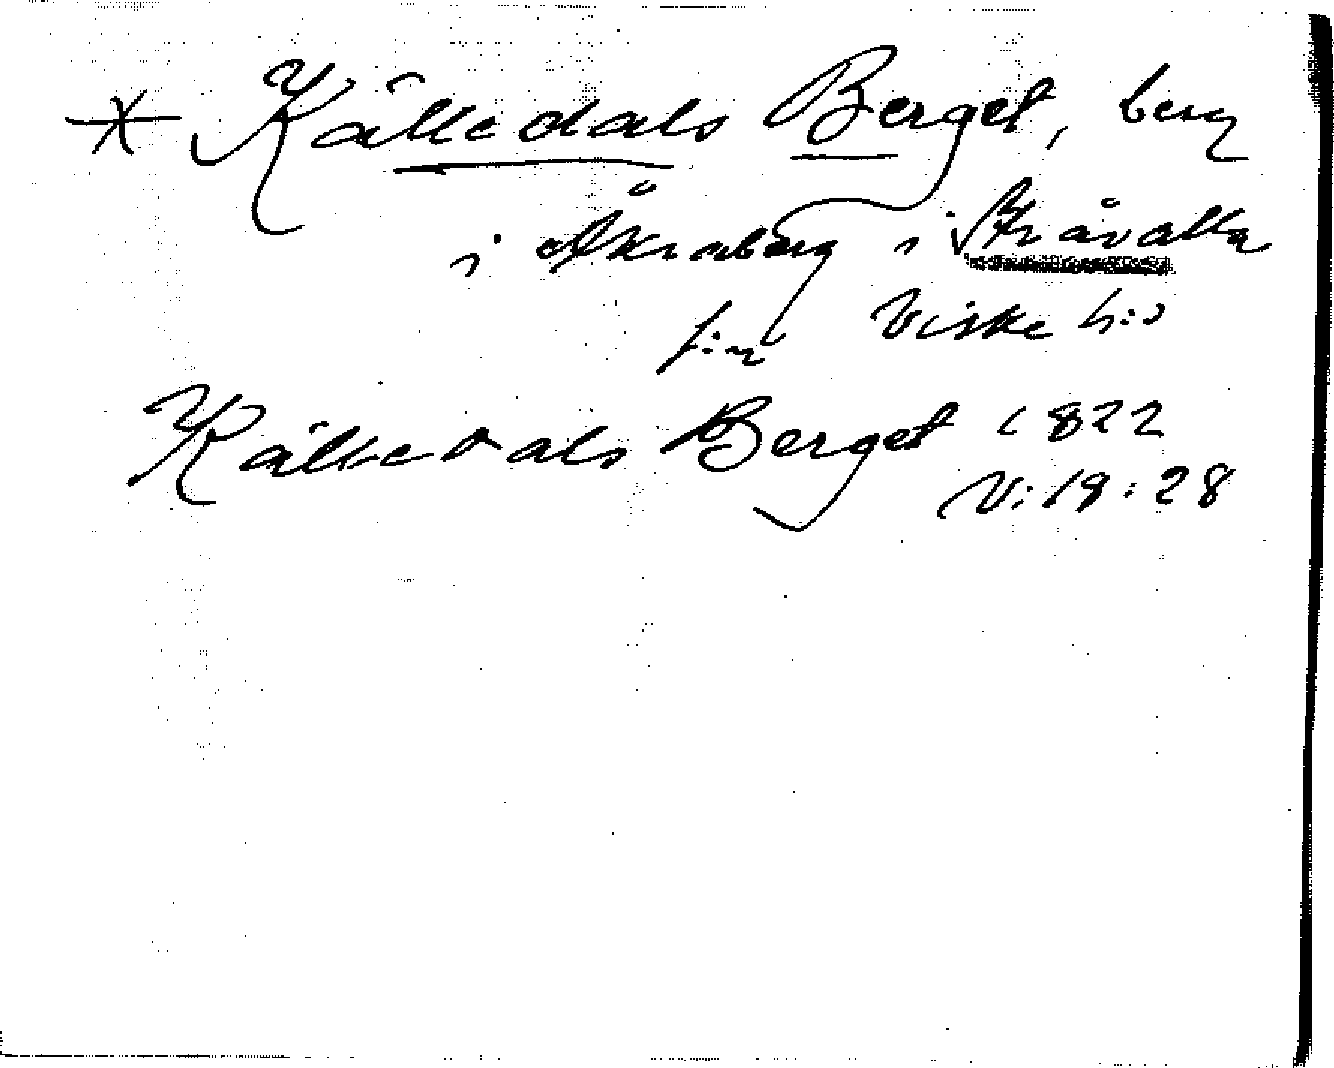 * Källedals Berget, berg
i Åkraberg i Stråvalla
s:n Viske h:d
Källedals Berget 1822
V:19:28